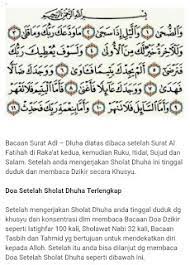 بِسْمِ اللَّهِ الرَّحْمَٰنِ الرَّحِيمِ
وَالضُّحَىٰ ١ وَاللَّيْلِ إِذَا سَجَىٰ ٢ مَا وَدَّعَكَ رَبُّكَ وَمَا قَلَىٰ ٣
وَلَلْآخِرَةُ خَيْرٌ لَكَ مِنَ الْأُولَىٰ ٤ وَلَسَوْفَ يُعْطِيكَ رَبُّكَ
فَتَرْضَىٰ ٥ أَلَمْ يَجِدْكَ يَتِيمًا فَآوَىٰ ٦ وَوَجَدَكَ ضَالًّا
فَهَدَىٰ ٧ وَوَجَدَكَ عَائِلًا فَأَغْنَىٰ ٨ فَأَمَّا الْيَتِيمَ فَلَا
تَقْهَرْ ٩ وَأَمَّا السَّائِلَ فَلَا تَنْهَرْ ١٠ وَأَمَّا بِنِعْمَةِ رَبِّكَ فَحَدِّثْ ١١
Bacaan Surat Adl – Dluha diatas dibaca setelah Surat Al
Fatihah di Raka'at kedua, kemudian Ruku, Itidal, Sujud dan
Salam. Setelah anda mengerjakan Sholat Dhuha ini tinggal
duduk dan membaca Dzikir secara Khusyu.
Doa Setelah Sholat Dhuha Terlengkap
Setelah mengerjakan Sholat Dhuha anda tinggal duduk dg
khusyu dan konsentrasi dlm membaca Bacaan Doa Dzikir
seperti Istighfar 100 kali, Sholawat Nabi 32 kali, Bacaan
Tasbih dan Tahmid yg bertujuan untuk mendekatkan diri
kepada Allah. Setelah itu anda bisa langsung membaca
Doa Setelah Sholat Dhuha seperti dibawah ini.